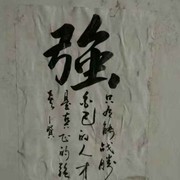 強
只有能战勝
自己的人才
是真正的強
者